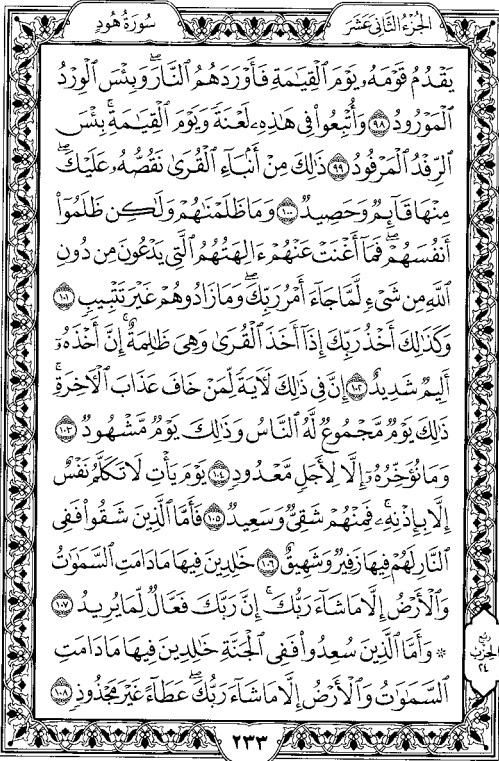 سُورَةُ هُودٍ
الجُزْءُ الثَّانِي عَشَرَ
يَقْدُمُ قَوْمَهُۥ يَوْمَ ٱلْقِيَٰمَةِ فَأَوْرَدَهُمُ ٱلنَّارَۖ وَبِئْسَ ٱلْوِرْدُ
ٱلْمَوْرُودُ ٩٨ وَأُتْبِعُوا۟ فِى هَٰذِهِۦ لَعْنَةً وَيَوْمَ ٱلْقِيَٰمَةِۚ بِئْسَ
ٱلرِّفْدُ ٱلْمَرْفُودُ ٩٩ ذَٰلِكَ مِنْ أَنۢبَآءِ ٱلْقُرَىٰ نَقُصُّهُۥ عَلَيْكَۖ
مِنْهَا قَآئِمٌ وَحَصِيدٌ ١٠٠ وَمَا ظَلَمْنَٰهُمْ وَلَٰكِن ظَلَمُوٓا۟
أَنفُسَهُمْۖ فَمَآ أَغْنَتْ عَنْهُمْ ءَالِهَتُهُمُ ٱلَّتِى يَدْعُونَ مِن دُونِ
ٱللَّهِ مِن شَىْءٍ لَّمَّا جَآءَ أَمْرُ رَبِّكَۖ وَمَا زَادُوهُمْ غَيْرَ تَتْبِيبٍ ١٠١
وَكَذَٰلِكَ أَخْذُ رَبِّكَ إِذَآ أَخَذَ ٱلْقُرَىٰ وَهِىَ ظَٰلِمَةٌۚ إِنَّ أَخْذَهُۥٓ
أَلِيمٌ شَدِيدٌ ١٠٢ إِنَّ فِى ذَٰلِكَ لَءَايَةً لِّمَنْ خَافَ عَذَابَ ٱلْءَاخِرَةِۚ
ذَٰلِكَ يَوْمٌ مَّجْمُوعٌ لَّهُ ٱلنَّاسُ وَذَٰلِكَ يَوْمٌ مَّشْهُودٌ ١٠٣
وَمَا نُؤَخِّرُهُۥٓ إِلَّا لِأَجَلٍ مَّعْدُودٍ ١٠٤ يَوْمَ يَأْتِ لَا تَكَلَّمُ نَفْسٌ
إِلَّا بِإِذْنِهِۦۚ فَمِنْهُمْ شَقِىٌّ وَسَعِيدٌ ١٠٥ فَأَمَّا ٱلَّذِينَ شَقُوا۟ فَفِى
ٱلنَّارِ لَهُمْ فِيهَا زَفِيرٌ وَشَهِيقٌ ١٠٦ خَٰلِدِينَ فِيهَا مَا دَامَتِ ٱلسَّمَٰوَٰتُ
وَٱلْأَرْضُ إِلَّا مَا شَآءَ رَبُّكَۚ إِنَّ رَبَّكَ فَعَّالٌ لِّمَا يُرِيدُ ١٠٧
۞ وَأَمَّا ٱلَّذِينَ سُعِدُوا۟ فَفِى ٱلْجَنَّةِ خَٰلِدِينَ فِيهَا مَا دَامَتِ
ٱلسَّمَٰوَٰتُ وَٱلْأَرْضُ إِلَّا مَا شَآءَ رَبُّكَۖ عَطَآءً غَيْرَ مَجْذُوذٍ ١٠٨
ربع
الحزب
٢٤
٢٣٣